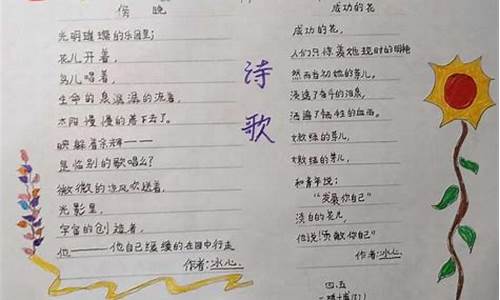 傍晚
光明璀璨的乐园里;
花儿开着,
鸟儿唱着,
生命的泉潺潺的流着,
太阳慢慢的落下去了。
映躲着余辉——
是临别的歌唱么?
微微的凉风吹送着,
光影里,
宇宙的创造者,
他——他自己缓缓的在园中行走
作者:冰心.
诗歌
成功的花
成功的花,
人们只惊羡她现时的明艳
然而当初她的芽儿,
浸透了奋斗的泪泉,
洒遍了牺牲的血雨。
嫩绿的芽儿,
嫩绿的芽儿,
和青年说:
"发展你自己"
淡白的花儿,
他说!贡献你自己"
作者:冰心.
四.五